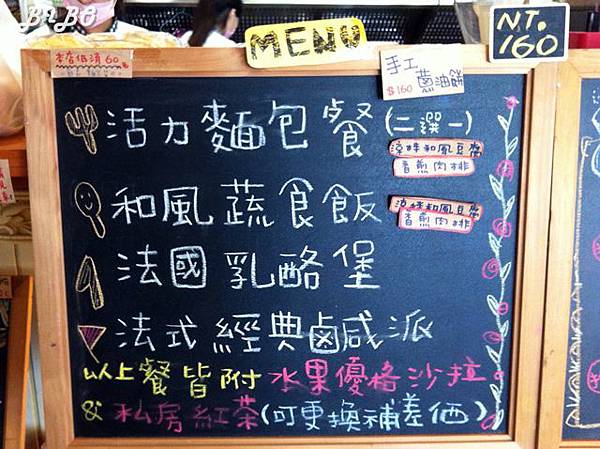 BABO
MENU
NT.
160
本店低消60
手工
蔥油餅
$160
活力麵包餐(二選一)
涼拌和風豆腐
香煎肉排
和風蔬食飯
涼拌和風豆腐
香煎肉排
法國乳酪堡
法式經典鹵咸派
以上餐皆附水果優格沙拉。
& 私房紅茶(可更換補差価)